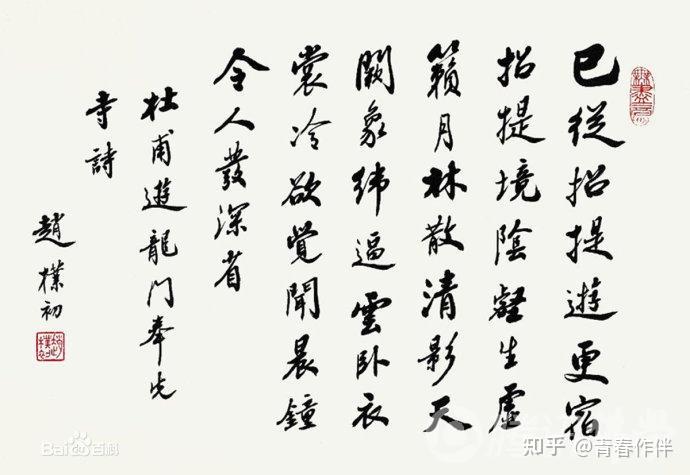 已從招提遊更宿
招提境陰壑生虛
籟月林散清影天
闕象緯逼雲臥衣
裳冷欲覺聞晨鐘
令人發深省
杜甫遊龍門奉先
寺詩
趙樸初
Baidu百科
知乎 @青春作伴